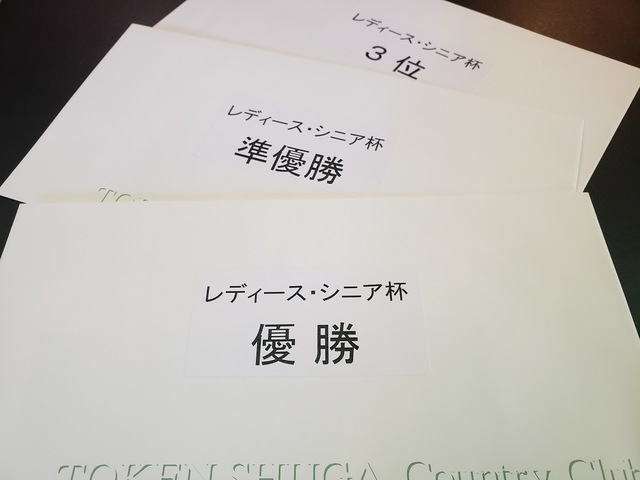 レディース・シニア杯
3位
レディース・シニア杯
準優勝
レディース・シニア杯
優勝
TOKEN SHUGA Country Club